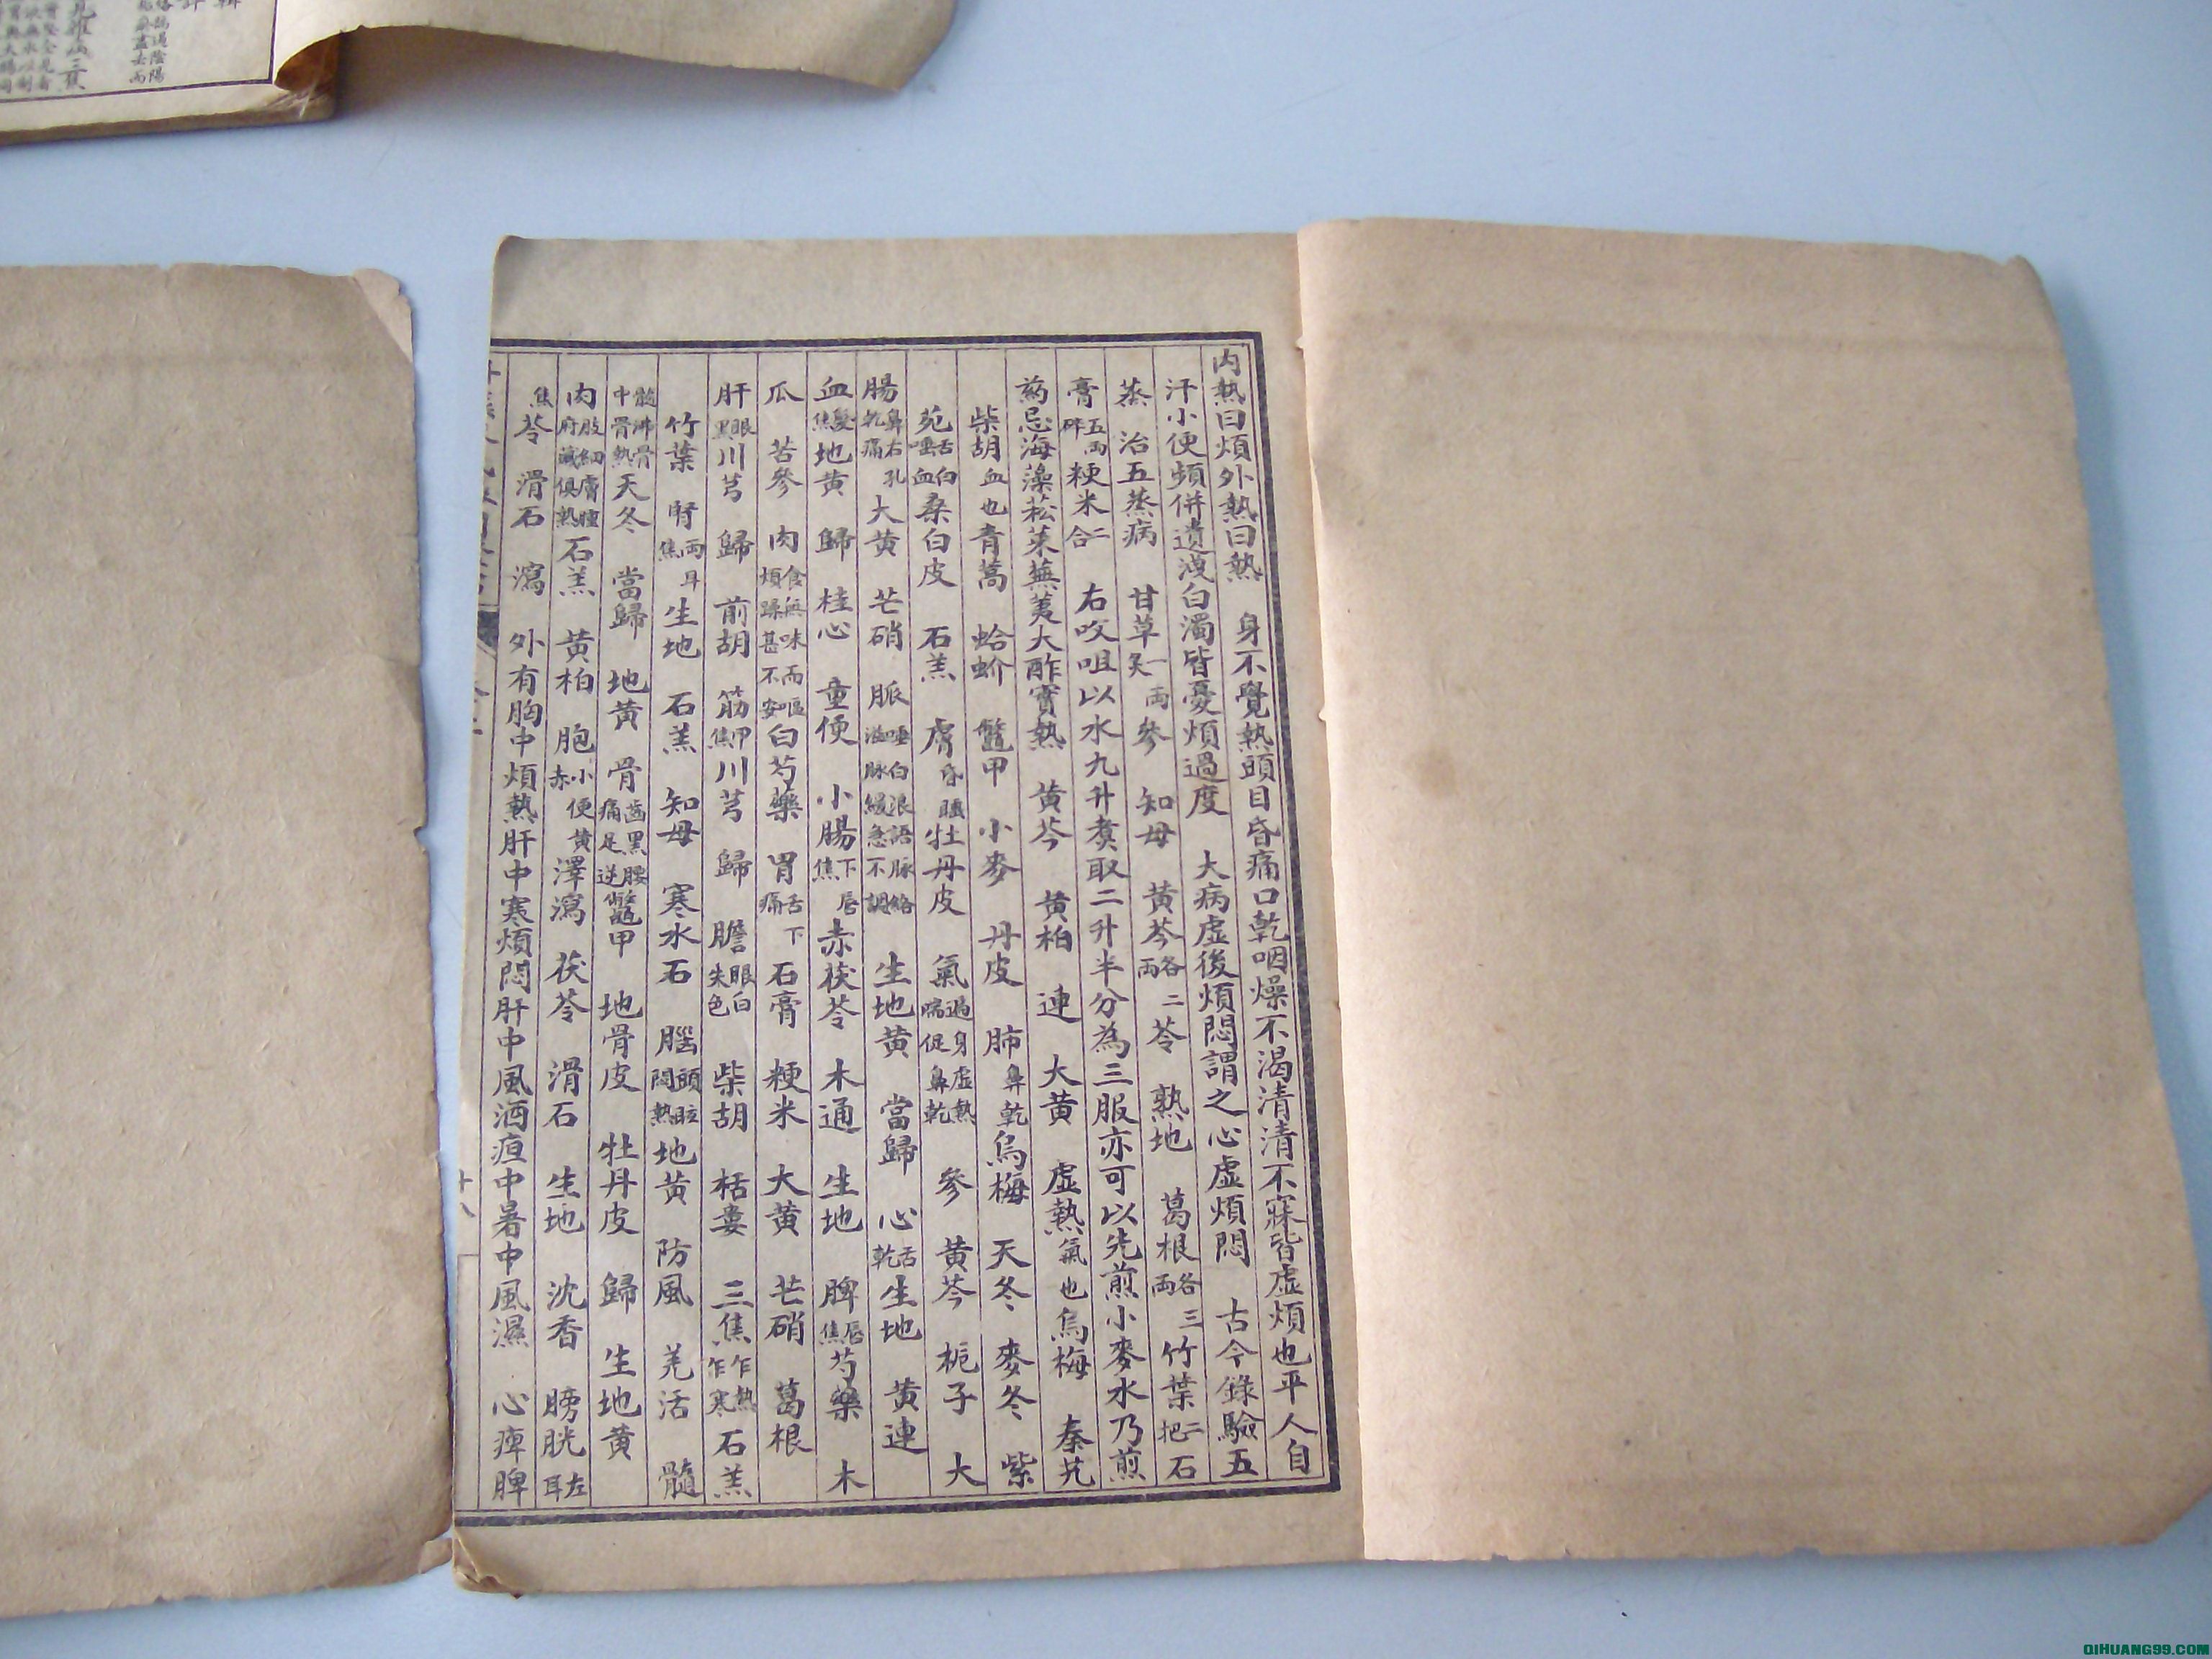 內熱曰煩外熱曰熱 身不覺熱頭目昏痛口乾咽燥不渴清清不寐皆虛煩也平人自
汗小便頻併遺洩白濁皆憂煩過度 大病虛後煩悶謂之心虛煩悶 古今錄驗五
蒸 治五蒸病 甘草一兩炙 參 知母 黃芩各二兩 苓 熟地 葛根各三兩 竹葉二把 石
膏五兩碎 粳米二合 右㕮咀以水九升煑取二升半分為三服亦可以先煎小麥水乃煎
药忌海藻菘菜蕪荑大酢實熱 黃芩 黃柏 連 大黃 虛熱氣也 烏梅 秦艽
柴胡血也 青蒿 蛤蚧 鱉甲 小麥 丹皮 肺鼻乾 烏梅 天冬 麥冬 紫
菀舌白唾血 桑白皮 石羔 膚昏睡 牡丹皮 氣遍身虛熱喘促鼻乾 參 黃芩 梔子 大
腸鼻右孔乾痛 大黃 芒硝 脈唾白浪語脉絡溢脉緩急不調 生地黃 當歸 心舌乾 生地 黃連
血髮焦 地黃 歸 桂心 童便 小腸下唇焦 赤茯苓 木通 生地 脾唇焦 芍藥 木
瓜 苦參 肉食無味而嘔煩躁甚不安 白芍藥 胃舌下痛 石膏 粳米 大黃 芒硝 葛根
肝眼黑 川芎 歸 前胡 筋甲焦 川芎 歸 膽眼白失色 柴胡 栝蔞 三焦乍熱乍寒 石羔
竹葉 腎兩耳焦 生地 石羔 知母 寒水石 腦頭眩悶熱 地黃 防風 羌活 髓
髓沸骨中骨熱 天冬 當歸 地黃 骨齒黑腰痛足逆 鱉甲 地骨皮 牡丹皮 歸 生地黃
肉肢細膚腫府臟俱熱 石羔 黃柏 胞小便黃赤 澤瀉 茯苓 滑石 生地 沈香 膀胱左耳
焦 苓 滑石 瀉 外有胸中煩熱肝中寒煩悶肝中風酒疸中暑中風濕 心痺脾
十八
QIHUANG99.COM